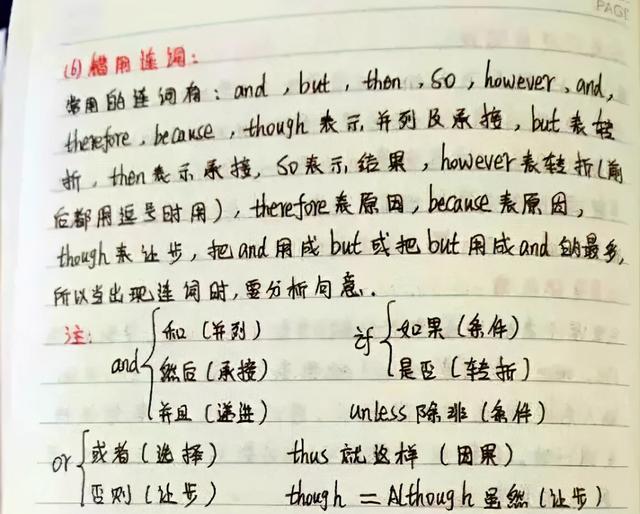 PAGE
(6) 错用连词:
常用的连词有: and, but, then, so, however, and,
therefore, because, though 表示并列及承接, but 表转
折, then 表示承接, so 表示结果, however 表转折 (前
后都用逗号时用), therefore 表原因, because 表原因,
though 表让步, 把 and 用成 but 或把 but 用成 and 的最多,
所以当出现连词时, 要分析句意.
注: and { 和 (并列) if { 如果 (条件)
然后 (承接) 是否 (转折)
并且 (递进) unless 除非 (条件)
or { 或者 (选择) thus 就这样 (因果)
否则 (让步) though = Although 虽然 (让步)